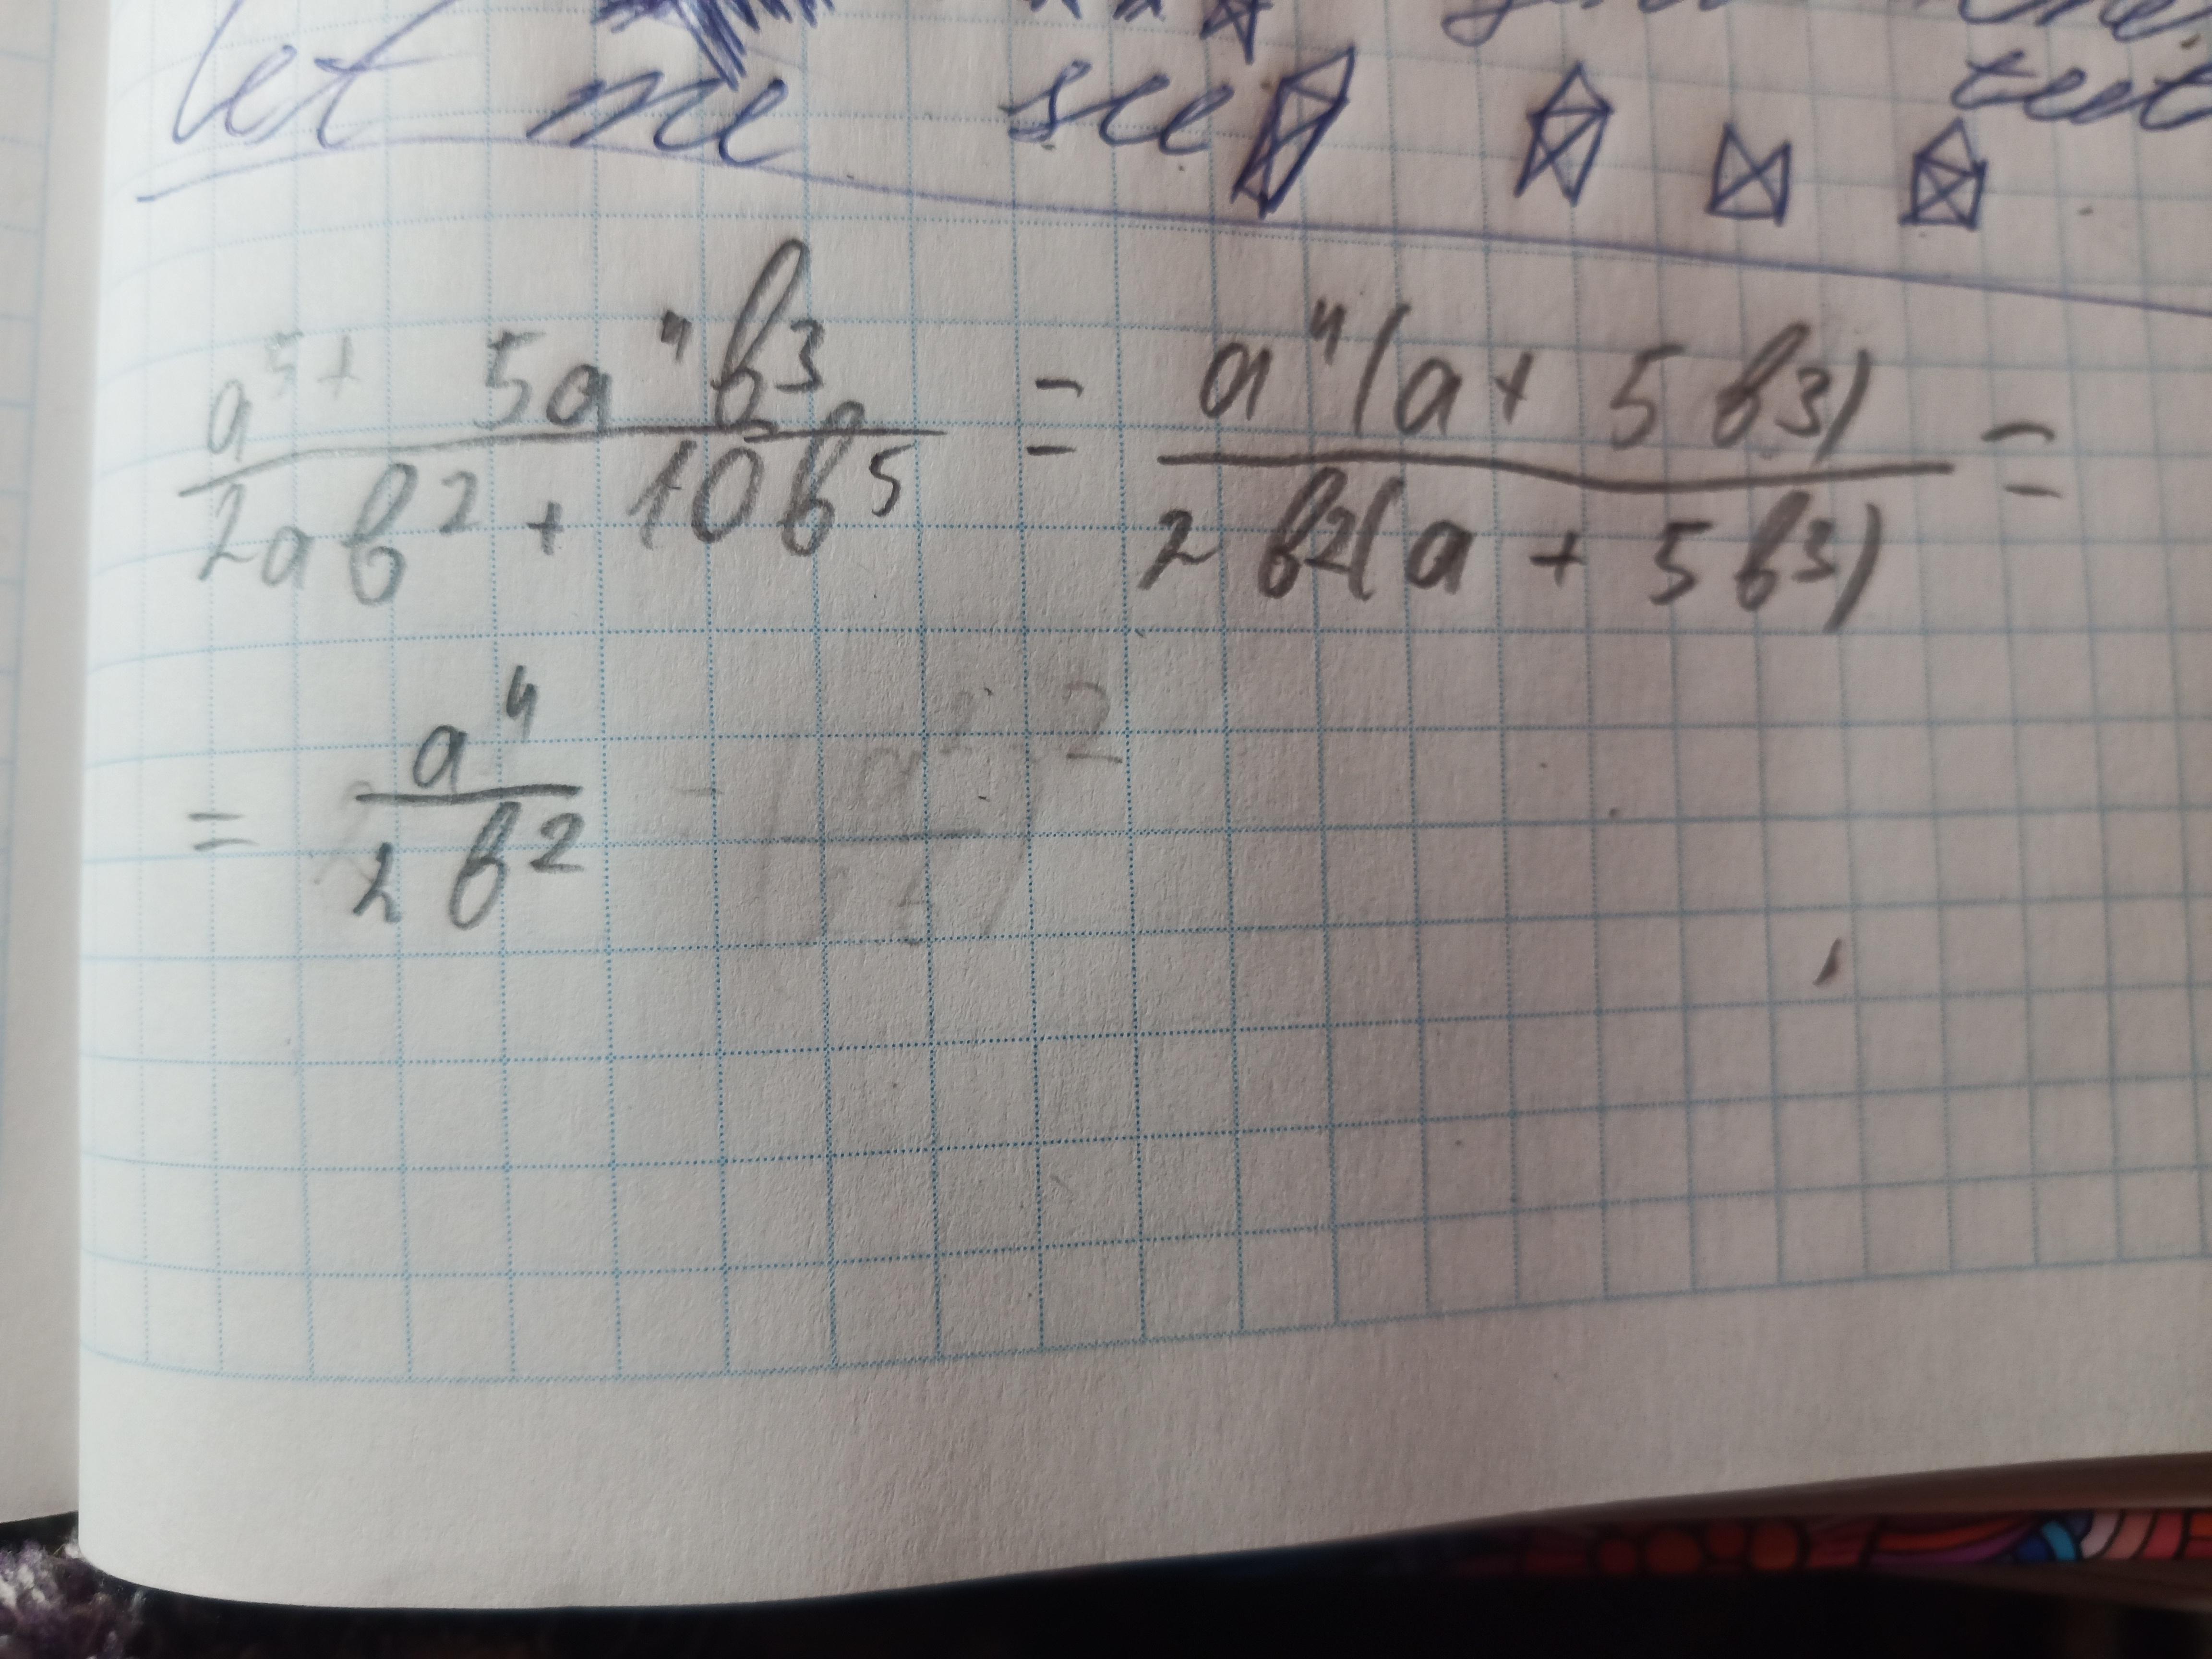 let me see
teet
a⁵ + 5a⁴b³ / 2ab² + 10b⁵ = a⁴(a + 5b³) / 2b²(a + 5b³) =
= a⁴ / 2b²